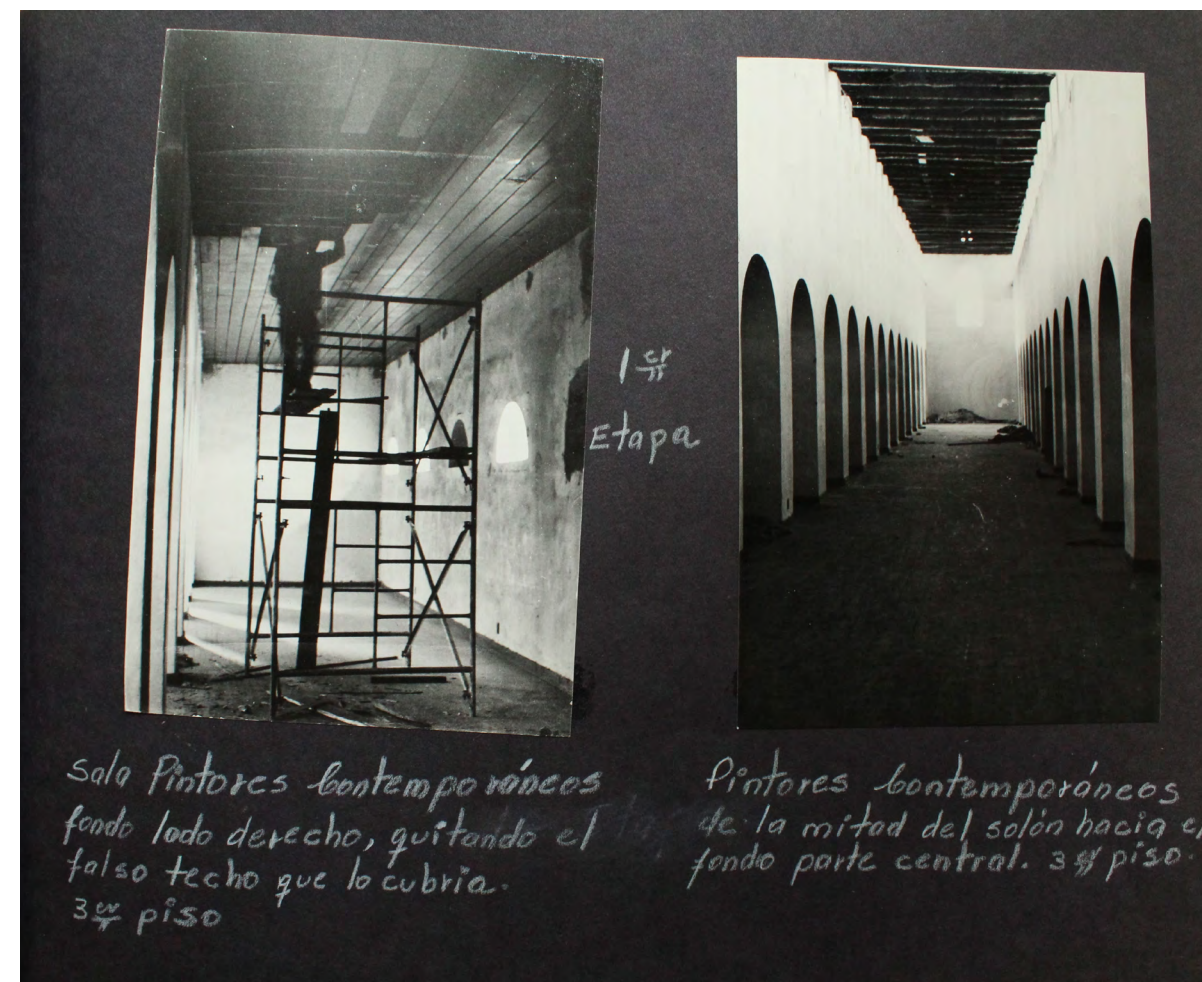 1er
Etapa
Sala Pintores Contemporáneos
fondo lado derecho, quitando el
falso techo que lo cubria.
3er piso
Pintores Contemporáneos
de la mitad del salón hacia
fondo parte central. 3er piso.